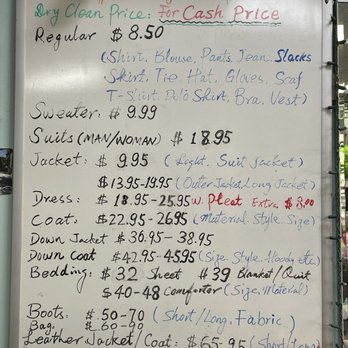 Dry Clean Price: For Cash Price
Regular $8.50
(Shirt. Blouse, Pants. Jean Slacks
Skirt. Tie Hat. Gloves. Scaf
T-Shirt. Polo Shirt, Bra. Vest)
Sweater: $9.99
Suits (MAN/WOMAN) $18.95
Jacket: $9.95 (Light. Suit Jacket)
$13.95-19.95 (Outer Jacket, Long Jacket)
Dress: $18.95-25.95 W. Pleat Extra $8.00
Coat: $22.95-26.95 (Material. Style. Size)
Down Jacket $36.95-38.95
Down Coat $42.95-45.95 (Size, Style. Hoody etc)
Bedding: $32 Sheet $39 Blanket/Quilt
$40-48 Comforter (Size, Material)
Boots: $50-70 (Short/Long. Fabric)
Bag: $60-90
Leather Jacket/Coat: $65-95 (Short/Long)